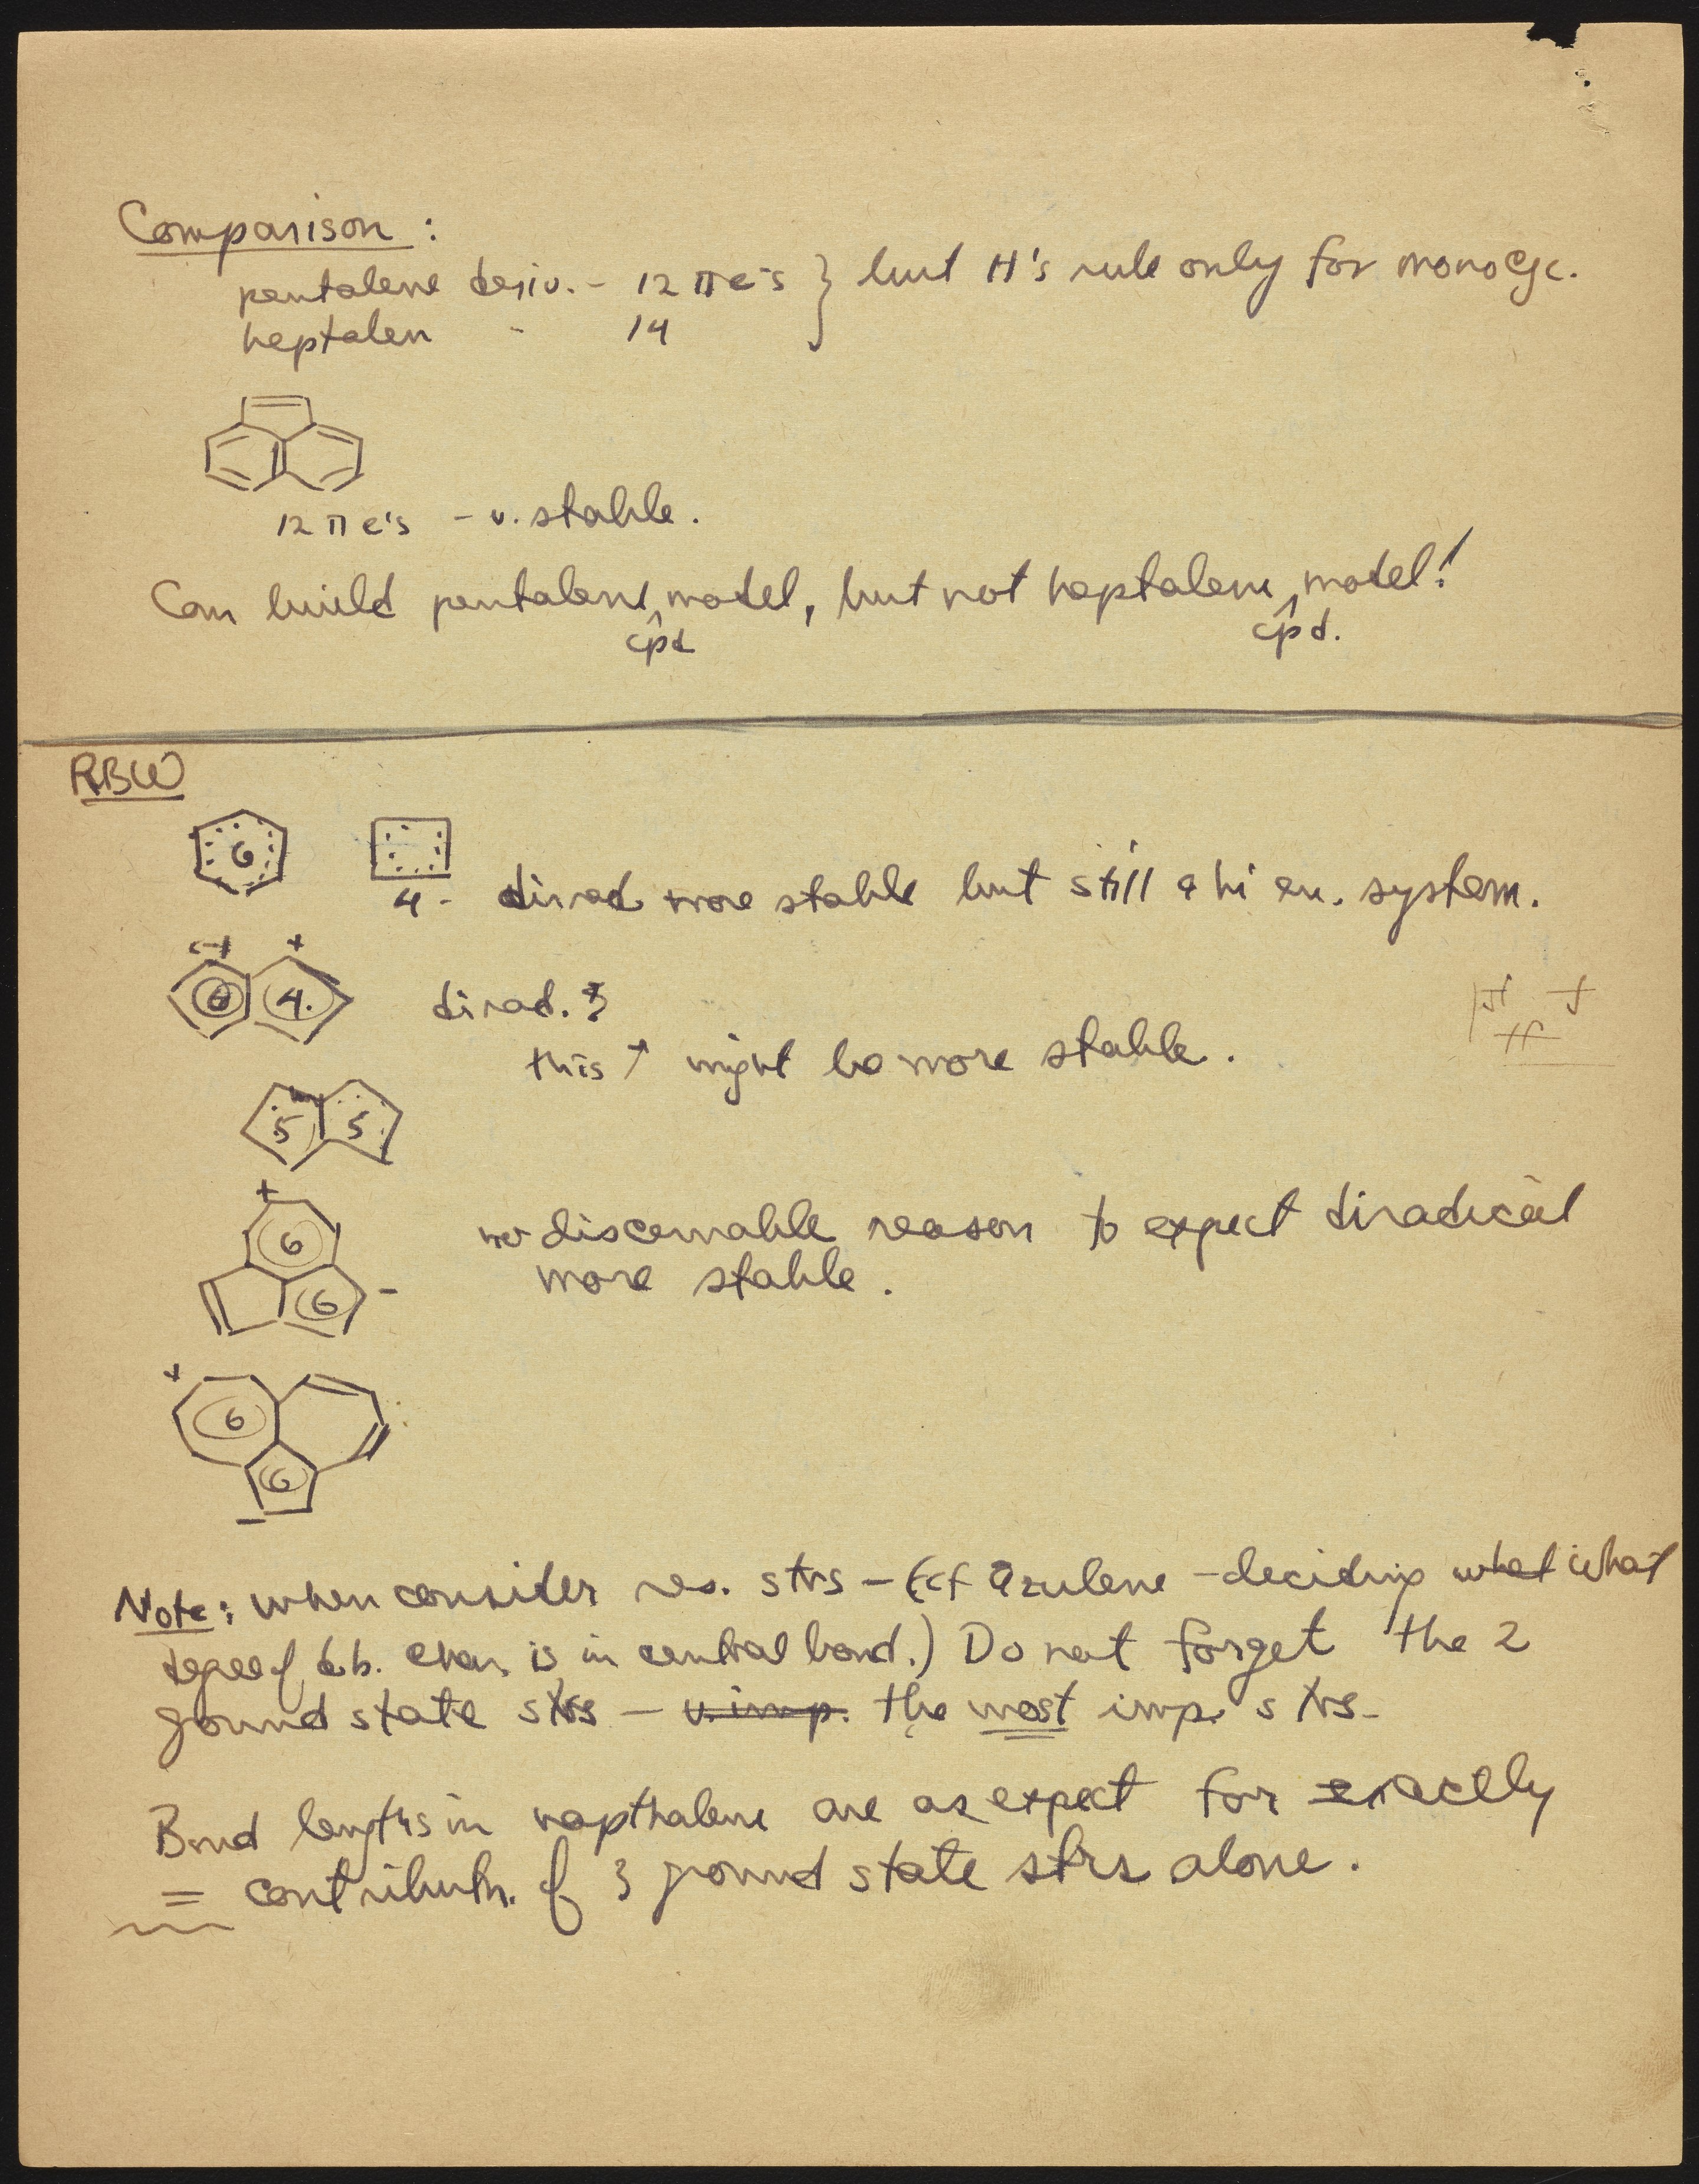 Comparison :
pentalene deriv. - 12 π e's } but H's rule only for monocyc.
heptalen - 14
12 π e's - v. stable.
Can build pentalene model, but not heptalene model!
cpd cpd.
RBW
6
4 - dirad more stable but still a hi en. system.
(-) +
6 4. dirad. ?
this ↑ might be more stable.
5 5
+
6 no discernable reason to expect diradical
6 - more stable.
+
6
6
-
Note: when consider res. strs - (cf azulene - deciding what what
degree of d.b. char. is in central bond.) Do not forget the 2
ground state strs - v. imp. the most imp. strs -
Bond lengths in napthalene are as expect for exactly
= contributn. of 3 ground state strs alone.